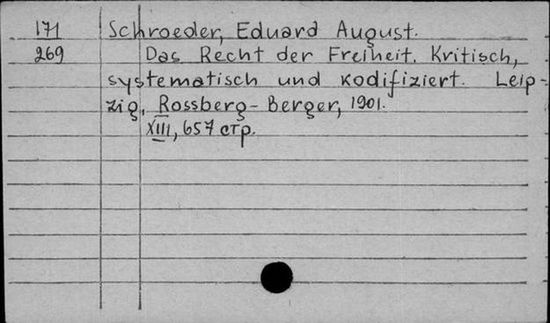 171 Schroeder, Eduard August.
269 Das Recht der Freiheit. Kritisch,
systematisch und kodifiziert. Leip-
zig, Rossberg-Berger, 1901.
XIII, 657 стр.